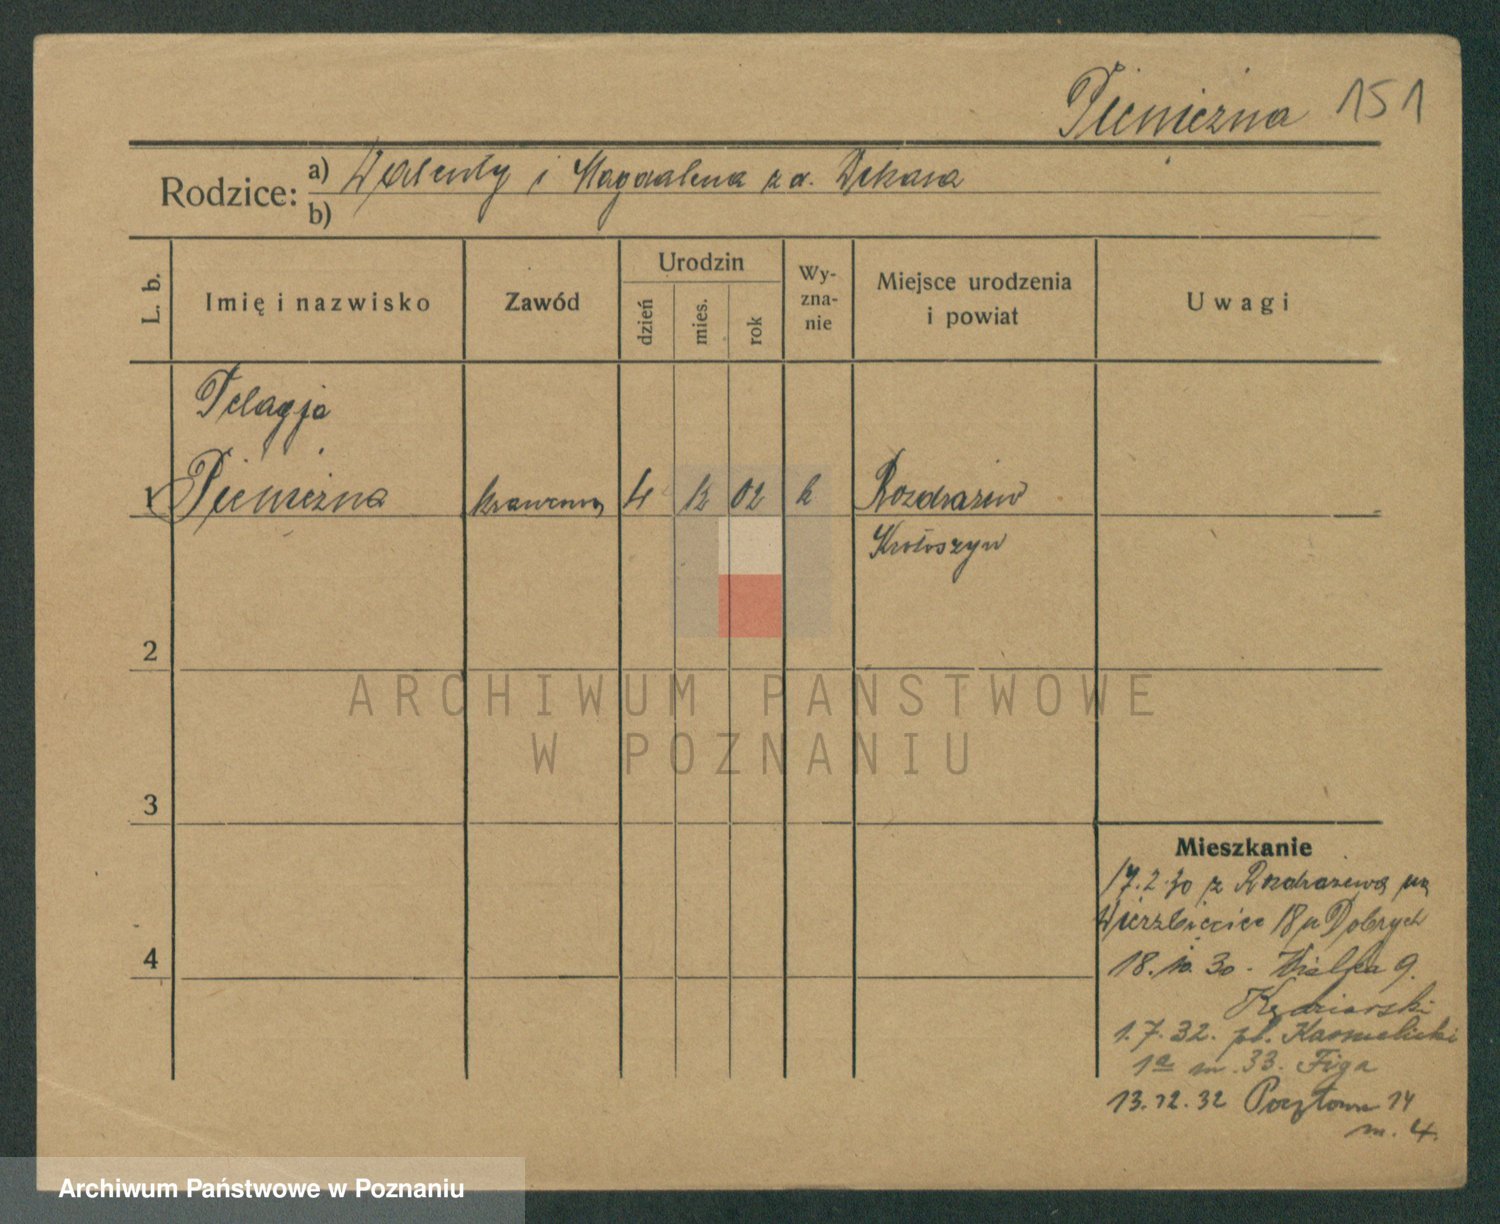 Pieniężna 151
Rodzice: a) Walenty i Magdalena z d. Dekara
b)
L. b. Imię i nazwisko Zawód Urodzin dzień mies. rok Wy-zna-nie Miejsce urodzenia i powiat Uwagi
Pelagja
1 Pieniężna krawcowa 4 12 02 k Rozdrażew
Krotoszyn
2
ARCHIWUM PAŃSTWOWE
W POZNANIU
3
Mieszkanie
17.2.30 z Rozdrażewa na
Wierzbięcice 18 u Dobrych
4
18.10.30 - 9.
Kędziorski
1.7.32. pl. Karmelicki
1a m. 33. Figa
13.12.32 Pocztowa 14
m. 4.
Archiwum Państwowe w Poznaniu